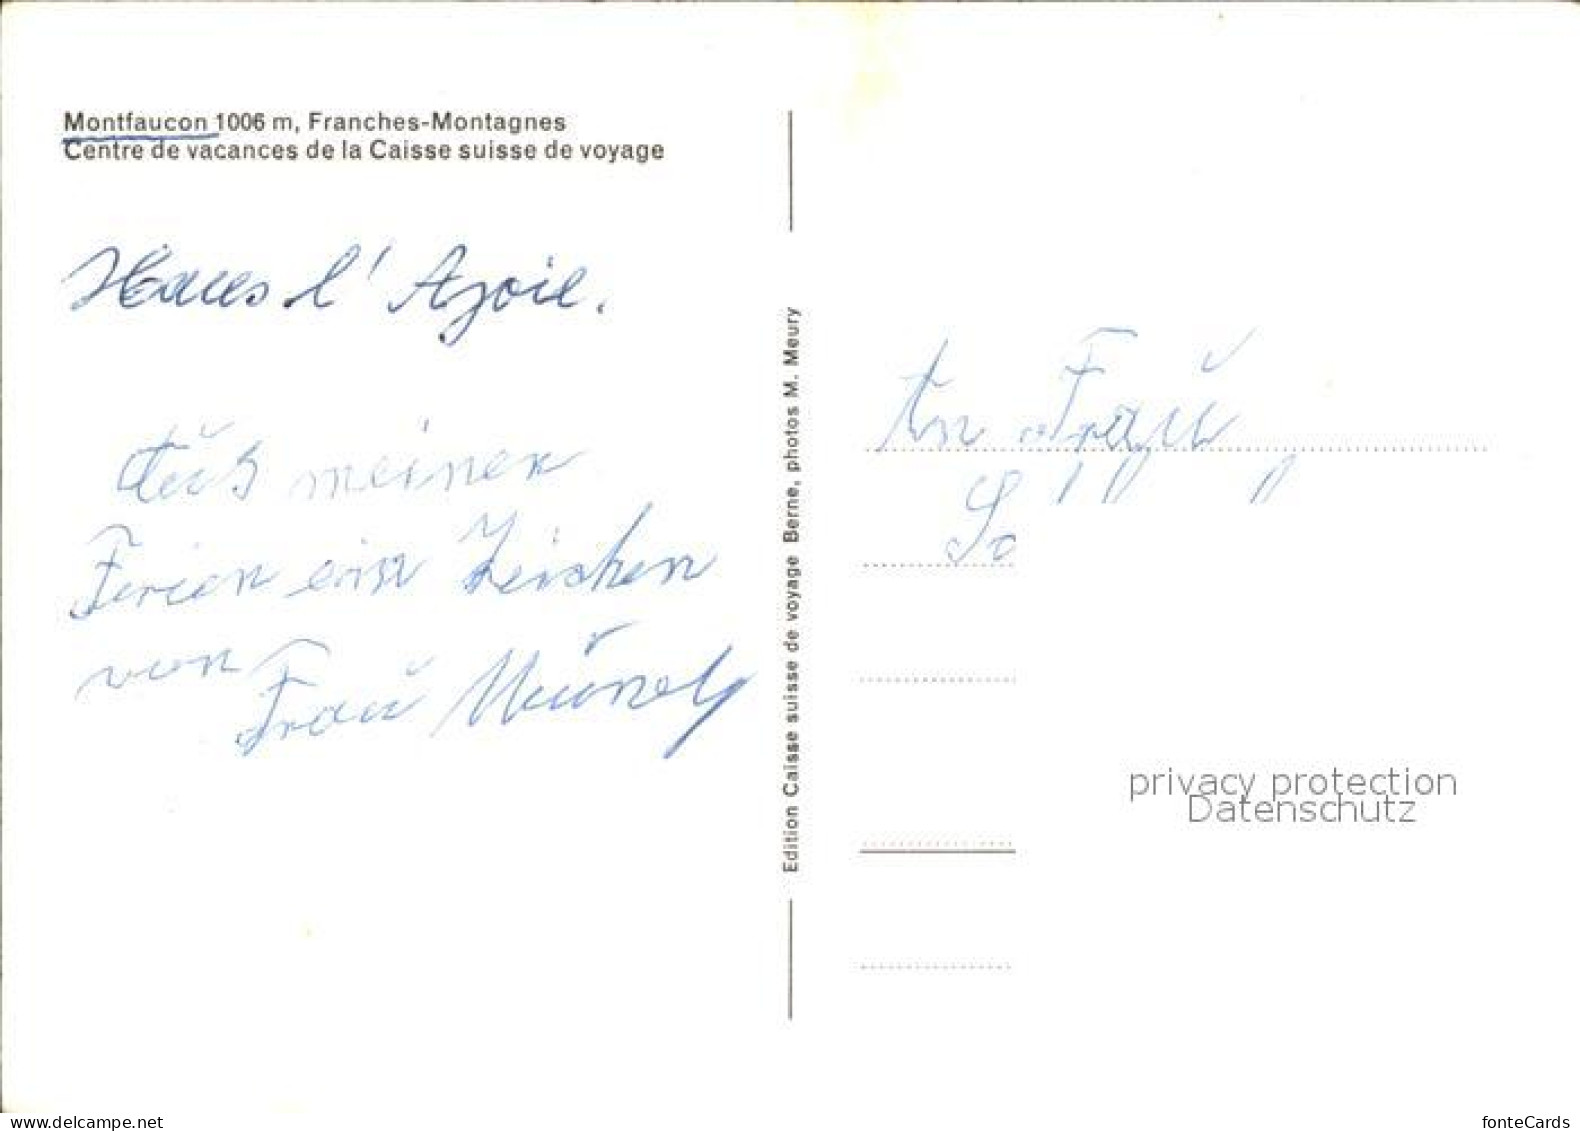 Montfaucon 1006 m, Franches-Montagnes
Centre de vacances de la Caisse suisse de voyage
Haus l' Ajoie.
Aus meinen
Ferien ein Zeichen
von
Frau
Edition Caisse suisse de voyage Berne, photos M. Meury
An Frau
privacy protection
Datenschutz
delcampe.net
fonteCards